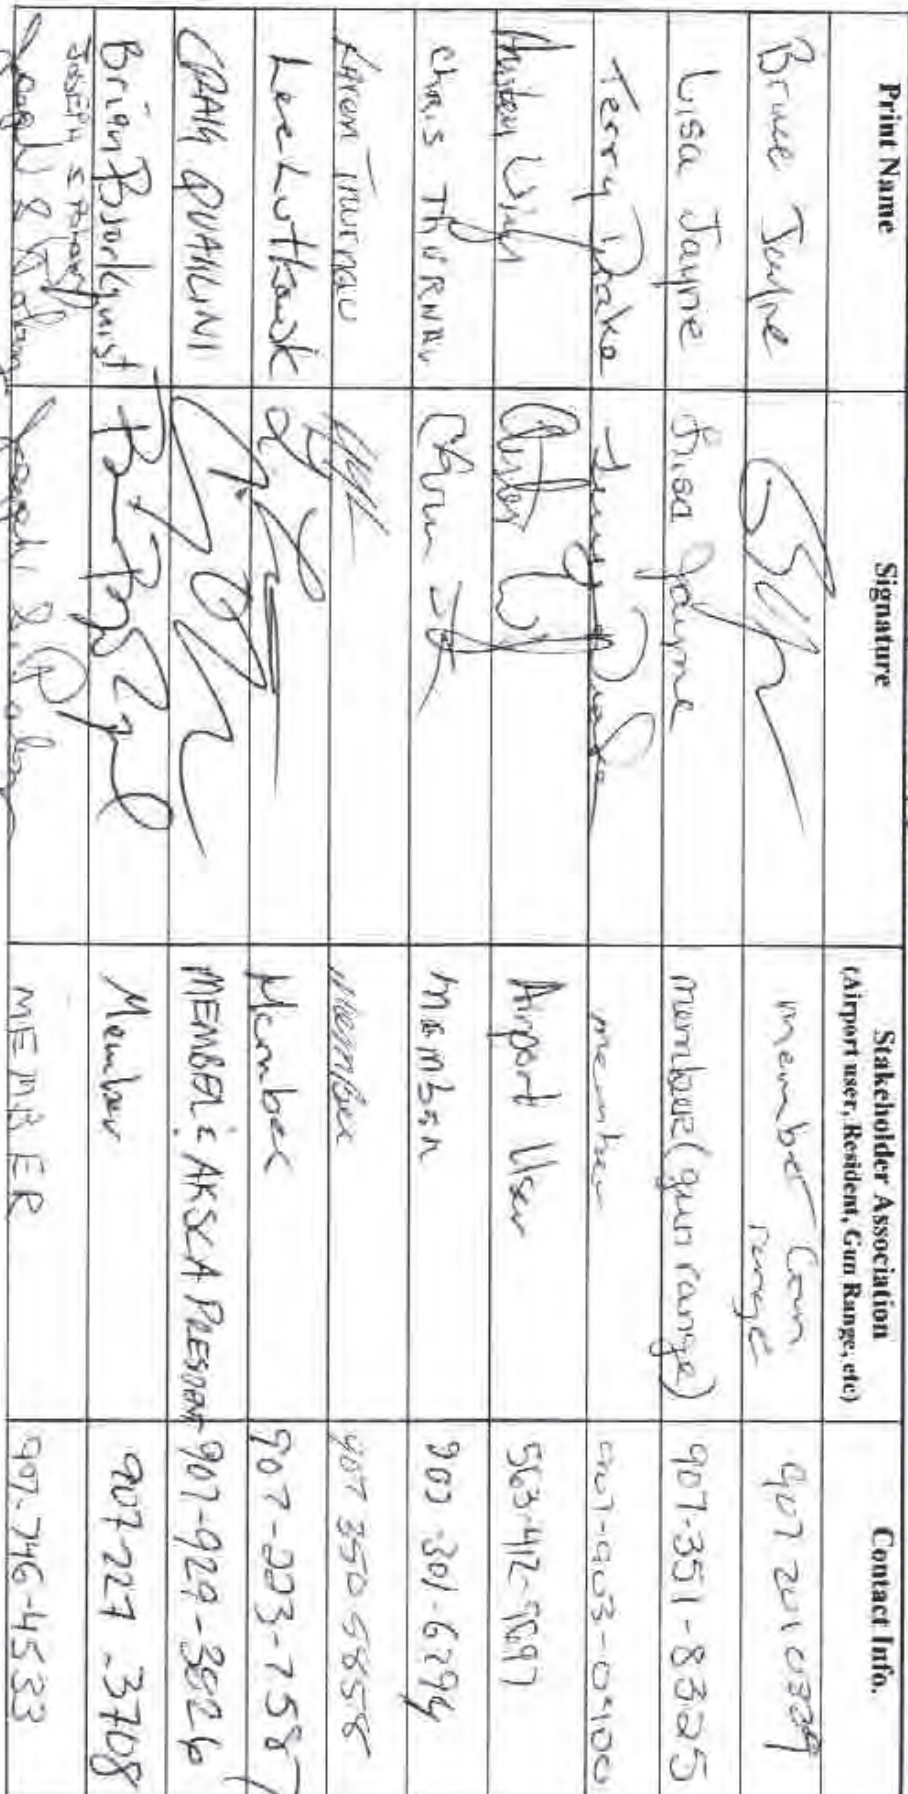 Print Name Signature Stakeholder Association Contact Info.
(Airport user, Resident, Gun Range, etc)
Bruce Jayne member Gun range 907 201 0339
Lisa Jayne Lisa Jayne member (gun range) 907-351-8325
Terry Drake Terry Drake member 907-903-0400
Austen Airport User 563-412-
Chris Thurnau Chris member 907-301-6294
Karen Thurnau member 907 350 5858
Lee Lutkowsk Member 907-223-7587
CRAIG QUALLINI MEMBER & AKSCA PRESIDENT 907-929-3826
Brian Bjorkquist Member 907-227-3708
JOSEPH MEMBER 907-746-4533
Joseph Joseph